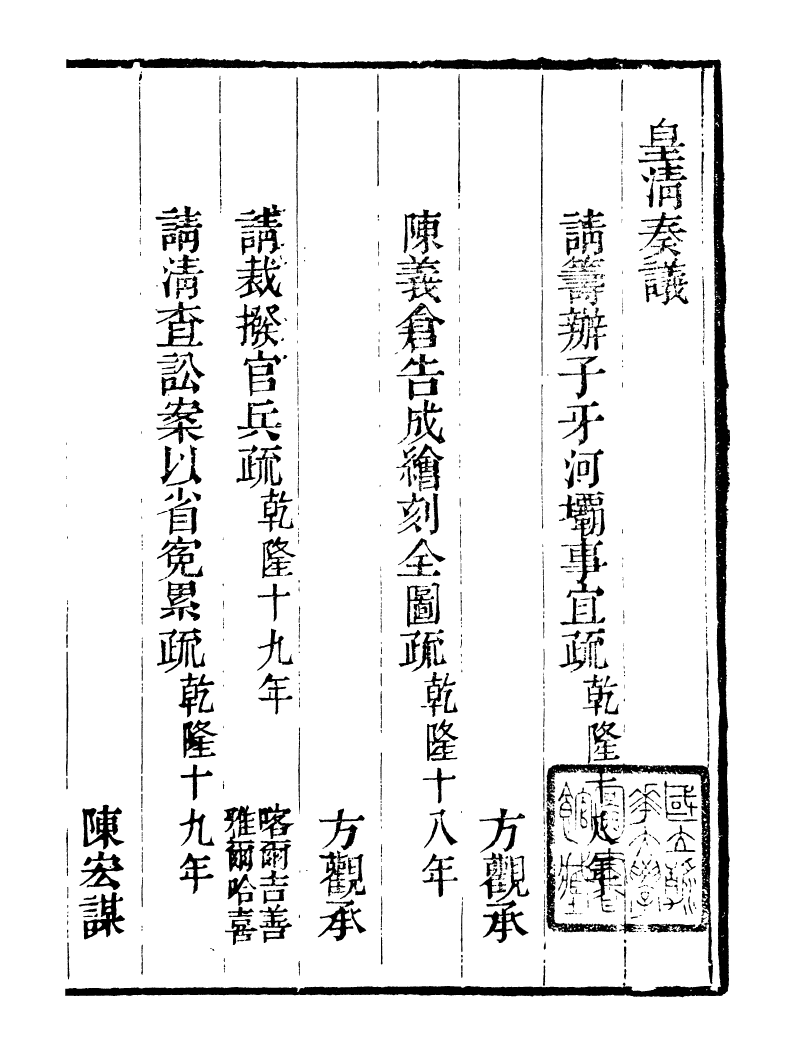 皇清奏議
請籌辦子牙河壩事宜疏乾隆十八年
方觀承
陳義倉告成繪刻全圖疏乾隆十八年
方觀承
請裁撥官兵疏乾隆十九年
喀爾吉善
雅爾哈喜
請清查訟案以省寃累疏乾隆十九年
陳宏謀